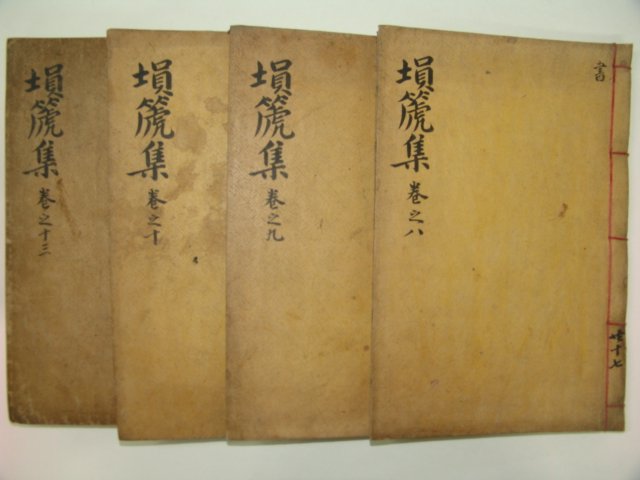 書
塤篪集
卷之八
共十七
塤篪集
卷之九
塤篪集
卷之十
塤篪集
卷之十三